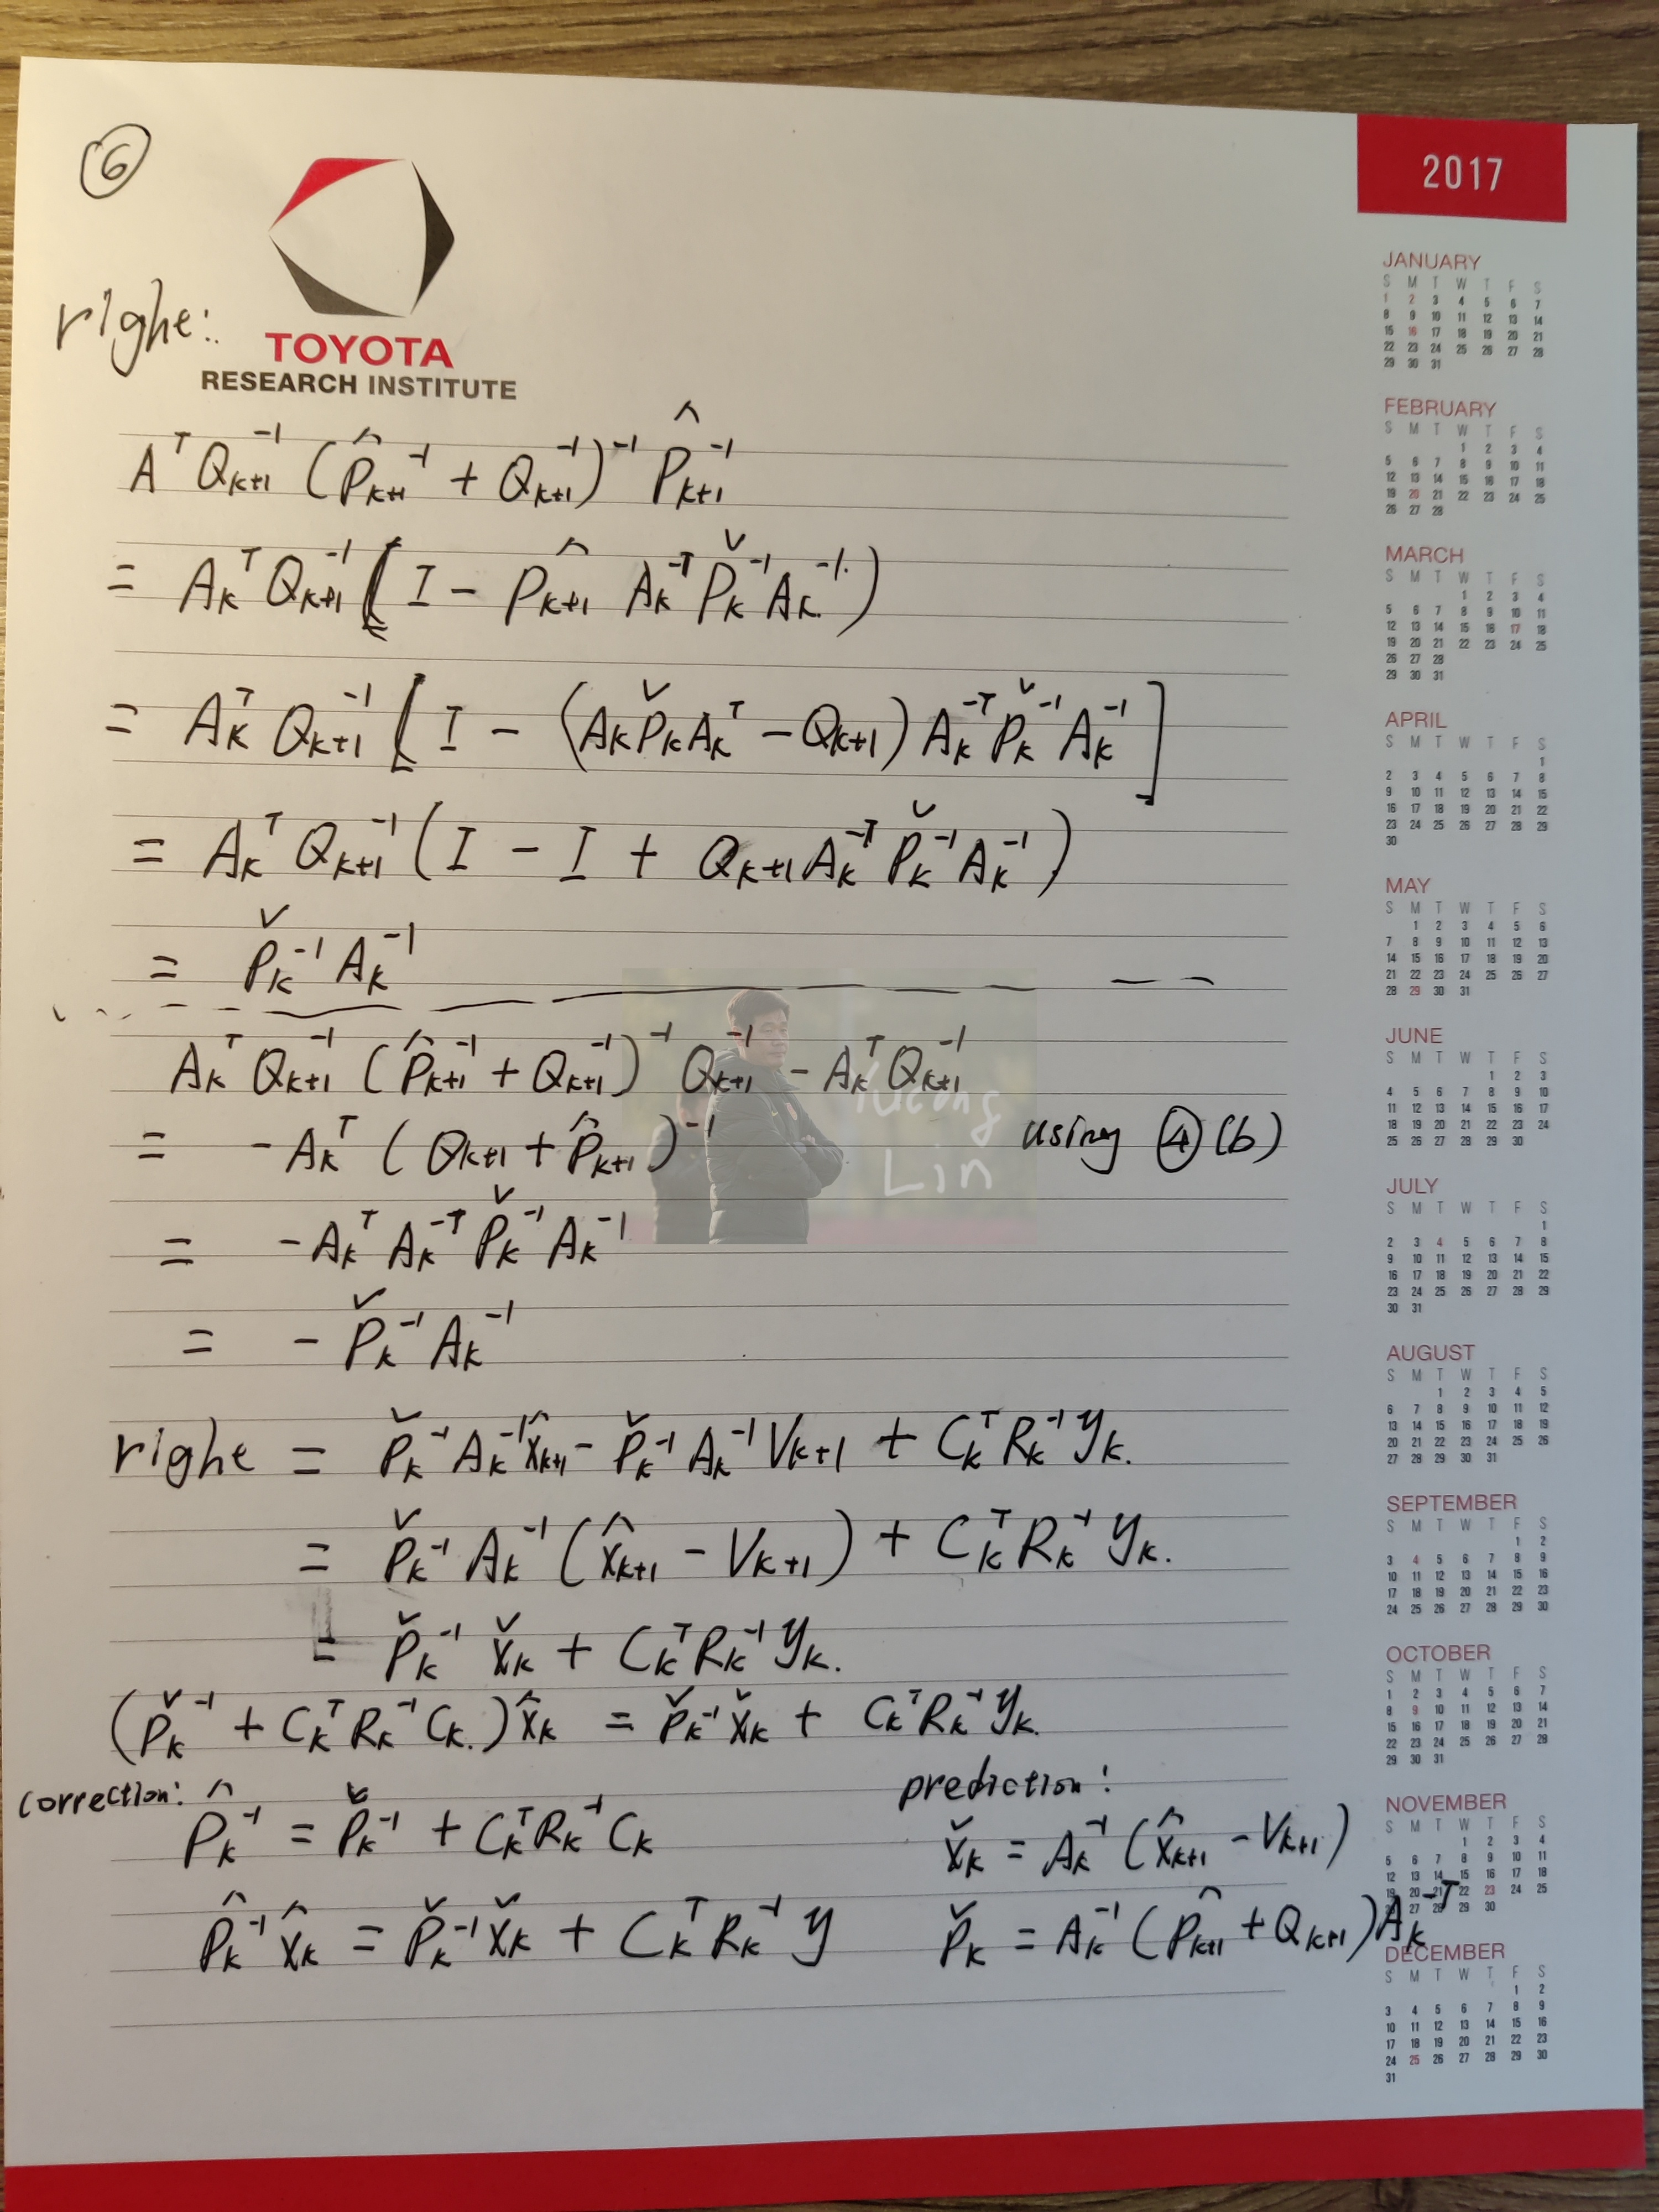 ⑥
righe:
TOYOTA
RESEARCH INSTITUTE
Aᵀ Q_{k+1}^{-1} (P̂_{k+1}^{-1} + Q_{k+1}^{-1})^{-1} P̂_{k+1}^{-1}
= A_kᵀ Q_{k+1}^{-1} ( I - P̂_{k+1} A_k^{-T} P̌_k^{-1} A_k^{-1} )
= A_kᵀ Q_{k+1}^{-1} [ I - (A_k P̌_k A_kᵀ - Q_{k+1}) A_k^{-T} P̌_k^{-1} A_k^{-1} ]
= A_kᵀ Q_{k+1}^{-1} ( I - I + Q_{k+1} A_k^{-T} P̌_k^{-1} A_k^{-1} )
= P̌_k^{-1} A_k^{-1}
A_kᵀ Q_{k+1}^{-1} (P̂_{k+1}^{-1} + Q_{k+1}^{-1})^{-1} Q_{k+1}^{-1} - A_kᵀ Q_{k+1}^{-1}
= -A_kᵀ ( Q_{k+1} + P̂_{k+1} )^{-1} using ④(b)
Yucong
Lin
= -A_kᵀ A_k^{-T} P̌_k^{-1} A_k^{-1}
= - P̌_k^{-1} A_k^{-1}
righe = P̌_k^{-1} A_k^{-1} x̂_{k+1} - P̌_k^{-1} A_k^{-1} V_{k+1} + C_kᵀ R_k^{-1} y_k.
= P̌_k^{-1} A_k^{-1} (x̂_{k+1} - V_{k+1}) + C_kᵀ R_k^{-1} y_k.
= P̌_k^{-1} x̌_k + C_kᵀ R_k^{-1} y_k.
(P̌_k^{-1} + C_kᵀ R_k^{-1} C_k.) x̂_k = P̌_k^{-1} x̌_k + C_kᵀ R_k^{-1} y_k.
correction:
P̂_k^{-1} = P̌_k^{-1} + C_kᵀ R_k^{-1} C_k
P̂_k^{-1} x̂_k = P̌_k^{-1} x̌_k + C_kᵀ R_k^{-1} y
prediction:
x̌_k = A_k^{-1} (x̂_{k+1} - V_{k+1})
P̌_k = A_k^{-1} (P̂_{k+1} + Q_{k+1}) A_k^{-T}
2017
JANUARY
S M T W T F S
1 2 3 4 5 6 7
8 9 10 11 12 13 14
15 16 17 18 19 20 21
22 23 24 25 26 27 28
29 30 31
FEBRUARY
S M T W T F S
1 2 3 4
5 6 7 8 9 10 11
12 13 14 15 16 17 18
19 20 21 22 23 24 25
26 27 28
MARCH
S M T W T F S
1 2 3 4
5 6 7 8 9 10 11
12 13 14 15 16 17 18
19 20 21 22 23 24 25
26 27 28
29 30 31
APRIL
S M T W T F S
1
2 3 4 5 6 7 8
9 10 11 12 13 14 15
16 17 18 19 20 21 22
23 24 25 26 27 28 29
30
MAY
S M T W T F S
1 2 3 4 5 6
7 8 9 10 11 12 13
14 15 16 17 18 19 20
21 22 23 24 25 26 27
28 29 30 31
JUNE
S M T W T F S
1 2 3
4 5 6 7 8 9 10
11 12 13 14 15 16 17
18 19 20 21 22 23 24
25 26 27 28 29 30
JULY
S M T W T F S
1
2 3 4 5 6 7 8
9 10 11 12 13 14 15
16 17 18 19 20 21 22
23 24 25 26 27 28 29
30 31
AUGUST
S M T W T F S
1 2 3 4 5
6 7 8 9 10 11 12
13 14 15 16 17 18 19
20 21 22 23 24 25 26
27 28 29 30 31
SEPTEMBER
S M T W T F S
1 2
3 4 5 6 7 8 9
10 11 12 13 14 15 16
17 18 19 20 21 22 23
24 25 26 27 28 29 30
OCTOBER
S M T W T F S
1 2 3 4 5 6 7
8 9 10 11 12 13 14
15 16 17 18 19 20 21
22 23 24 25 26 27 28
29 30 31
NOVEMBER
S M T W T F S
1 2 3 4
5 6 7 8 9 10 11
12 13 14 15 16 17 18
19 20 21 22 23 24 25
27 28 29 30
DECEMBER
S M T W T F S
1 2
3 4 5 6 7 8 9
10 11 12 13 14 15 16
17 18 19 20 21 22 23
24 25 26 27 28 29 30
31